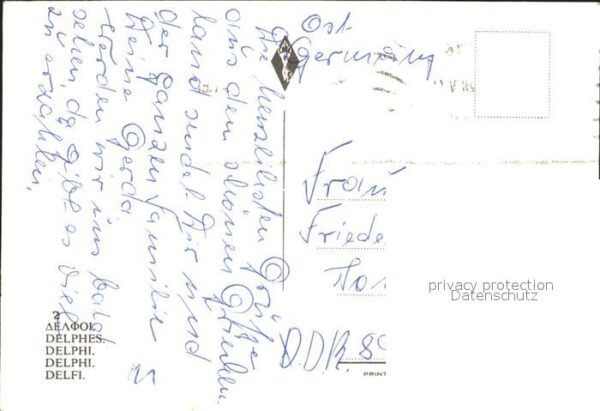 Die herzlichsten Grüße
aus dem schönen Griechen
land sendet Dir und
der ganzen Familie
Deine Gerda
Werden wir uns bald
sehen, da gibt es viel
zu erzählen.
Ost
Germany
Frau
Friede
D.D.R. 80
privacy protection
Datenschutz
2
ΔΕΛΦΟΙ.
DELPHES.
DELPHI.
DELPHI.
DELFI.
PRINT